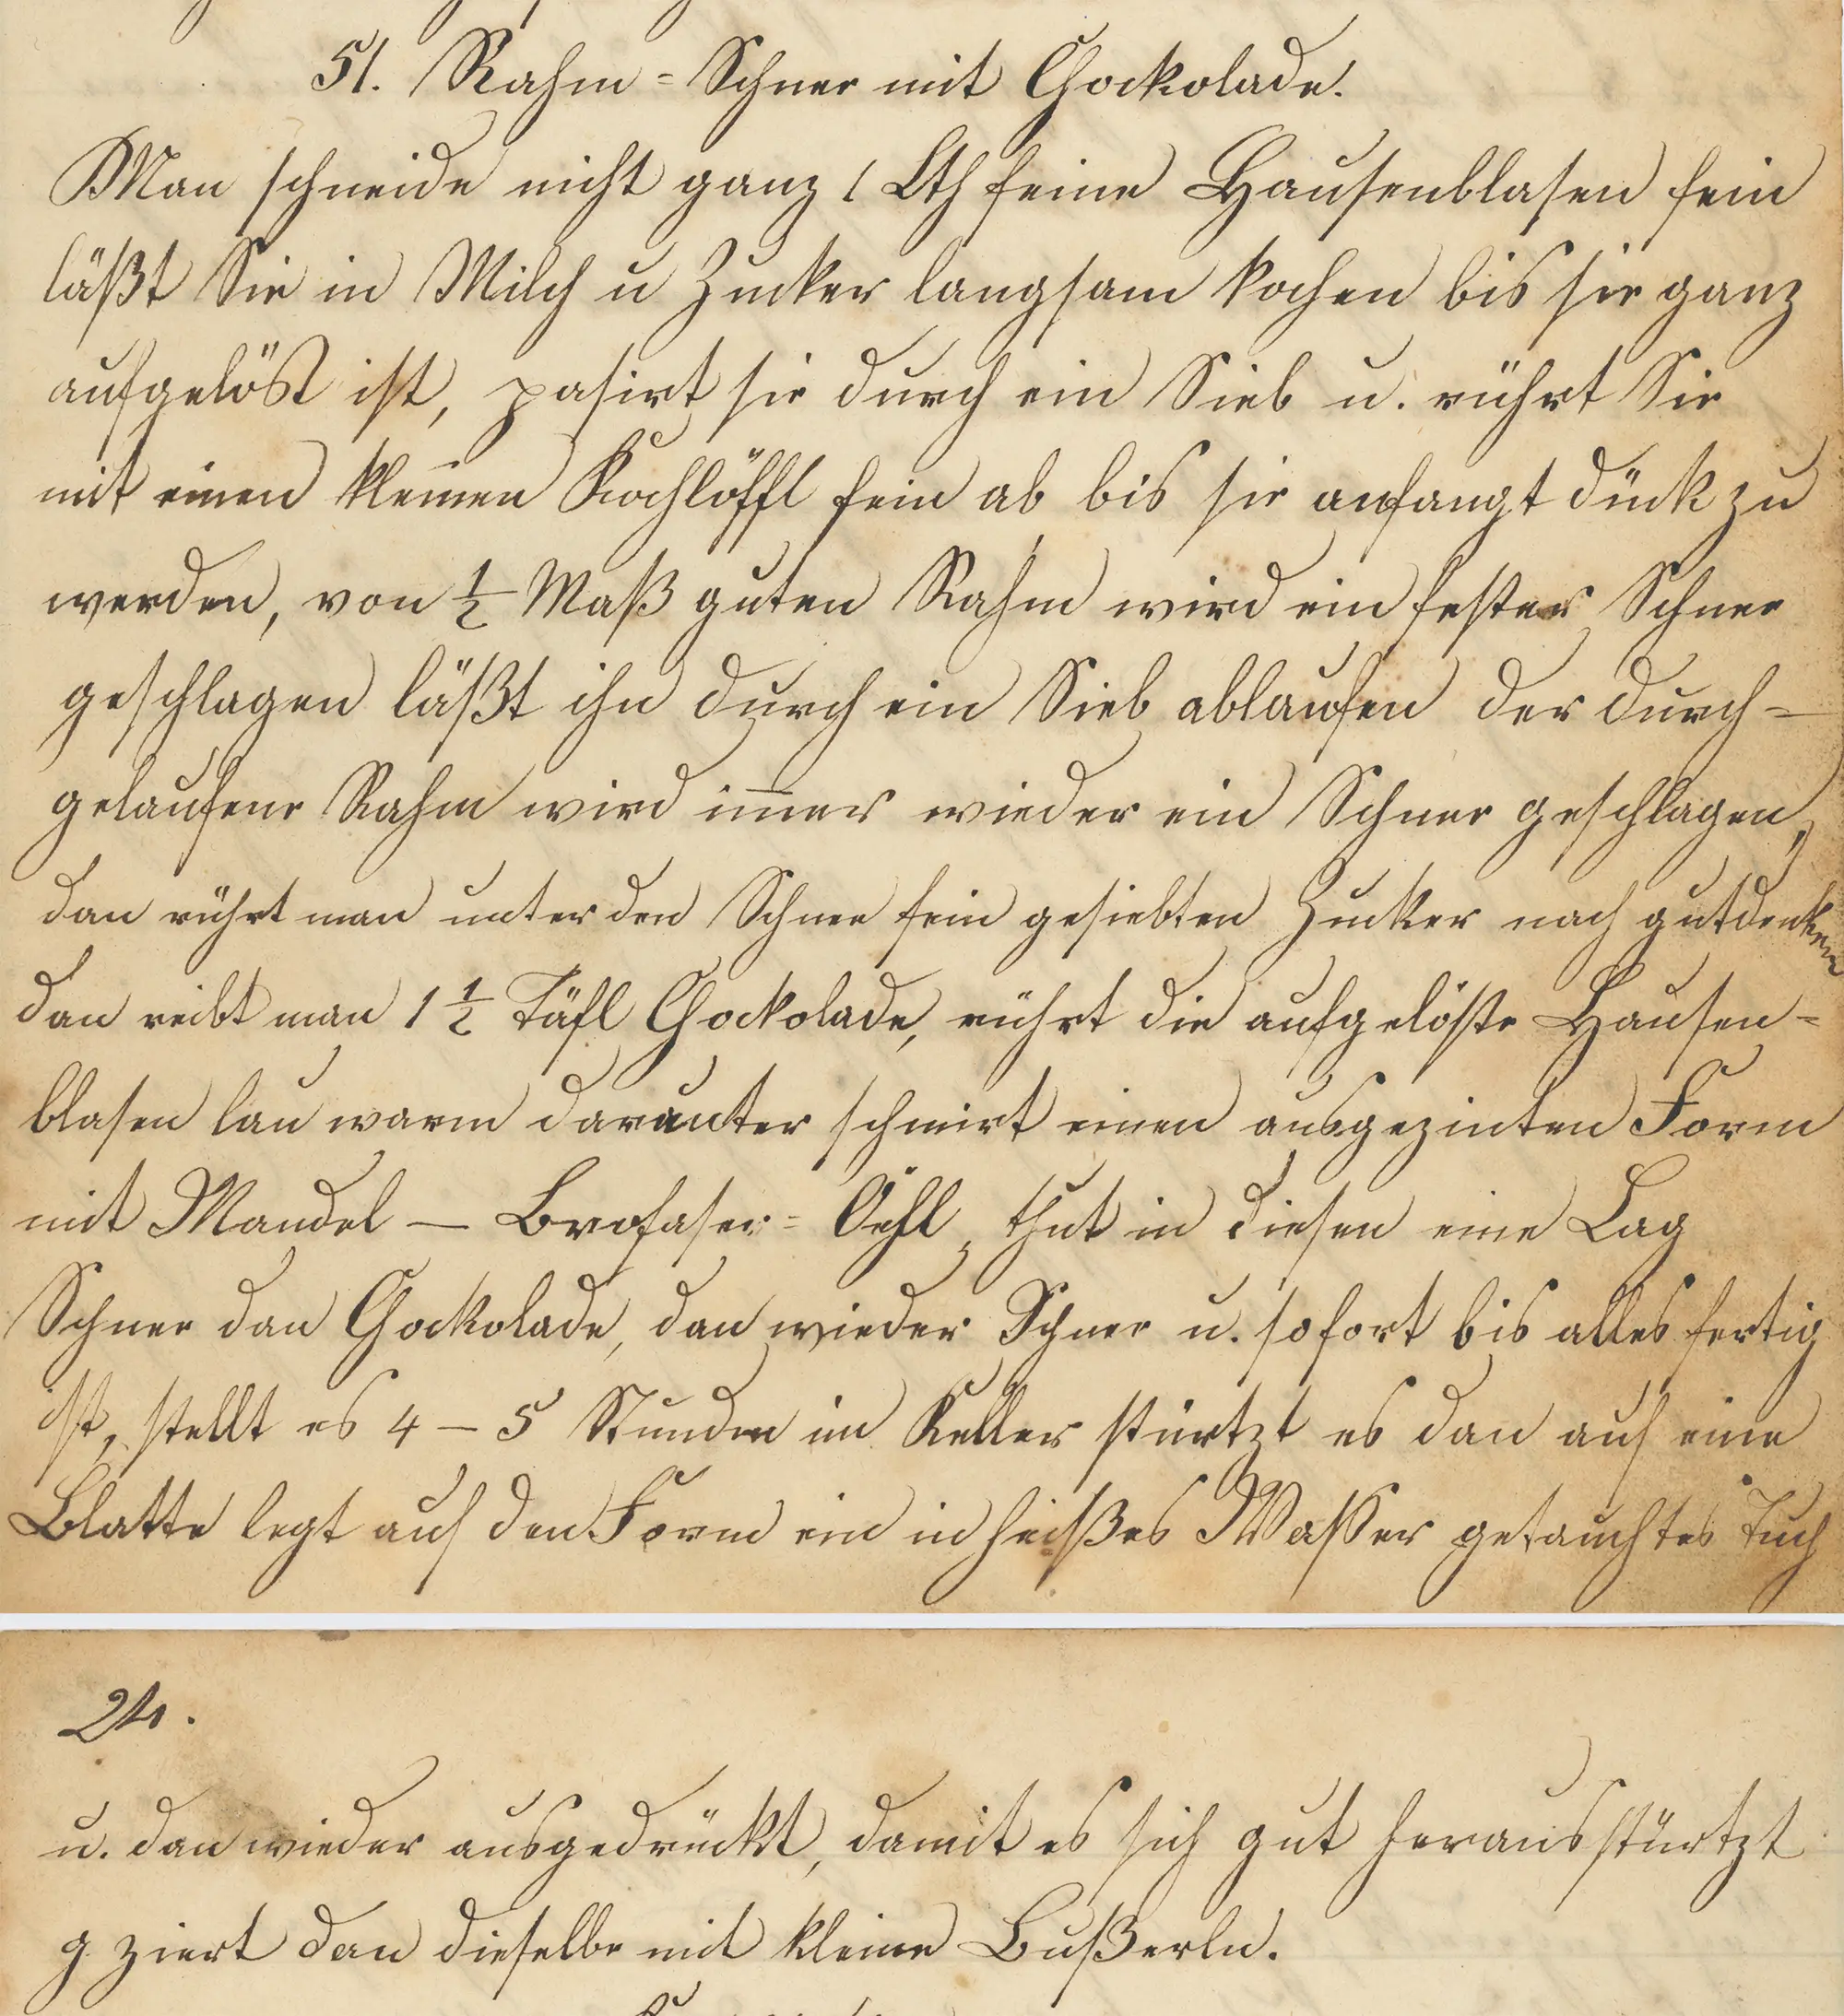 51. Rahm = Schnee mit Chockolade.
Man schneide nicht ganz 1 Lth feine Hausenblasen fein
läßt Sie in Milch u Zucker langsam kochen bis sie ganz
aufgelöst ist, pasirt sie durch ein Sieb u. rührt Sie
mit einen kleinen Kochlöffl fein ab bis sie anfangt dück zu
werden, von ½ Maß guten Rahm wird ein fester Schnee
geschlagen läßt ihn durch ein Sieb ablaufen der durch=
gelaufene Rahm wird im̅er wieder ein Schnee geschlagen,
dan rührt man unter den Schnee fein gesiebten Zucker nach gutdenken
dan reibt man 1 ½ Täfl Chockolade, rührt die aufgelöste Hausen=
blasen lau warm darunter schmirt einen ausgezinten Form
mit Mandel — = Oehl, thut in diesen eine Lag
Schnee dan Chockolade, dan wieder Schnee u. sofort bis alles fertig
ist, stellt es 4 — 5 Stunden im Keller stürtzt es dan auf eine
Blatte legt auf den Form ein in heißes Wasser getauchtes Tuch
24.
u. dan wieder ausgedrückt, damit es sich gut herausstürtzt
ziert dan dieselbe mit kleine Bußerln.